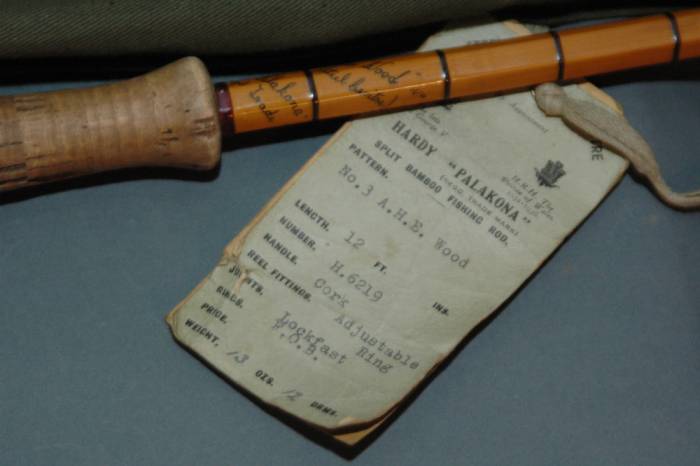 "Palakona"
Trade
Wood"
HARDY "PALAKONA"
(REGD. TRADE MARK)
H.R.H. The
Prince of Wales
SPLIT BAMBOO FISHING ROD.
PATTERN.
No.3 A.H.E. Wood
LENGTH. 12 FT. INS.
NUMBER. H.6219
HANDLE. Cork
REEL FITTINGS. Adjustable
JOINTS. Lockfast Ring
RINGS.
PRICE.
WEIGHT. 13 OZS. 12 DRMS.